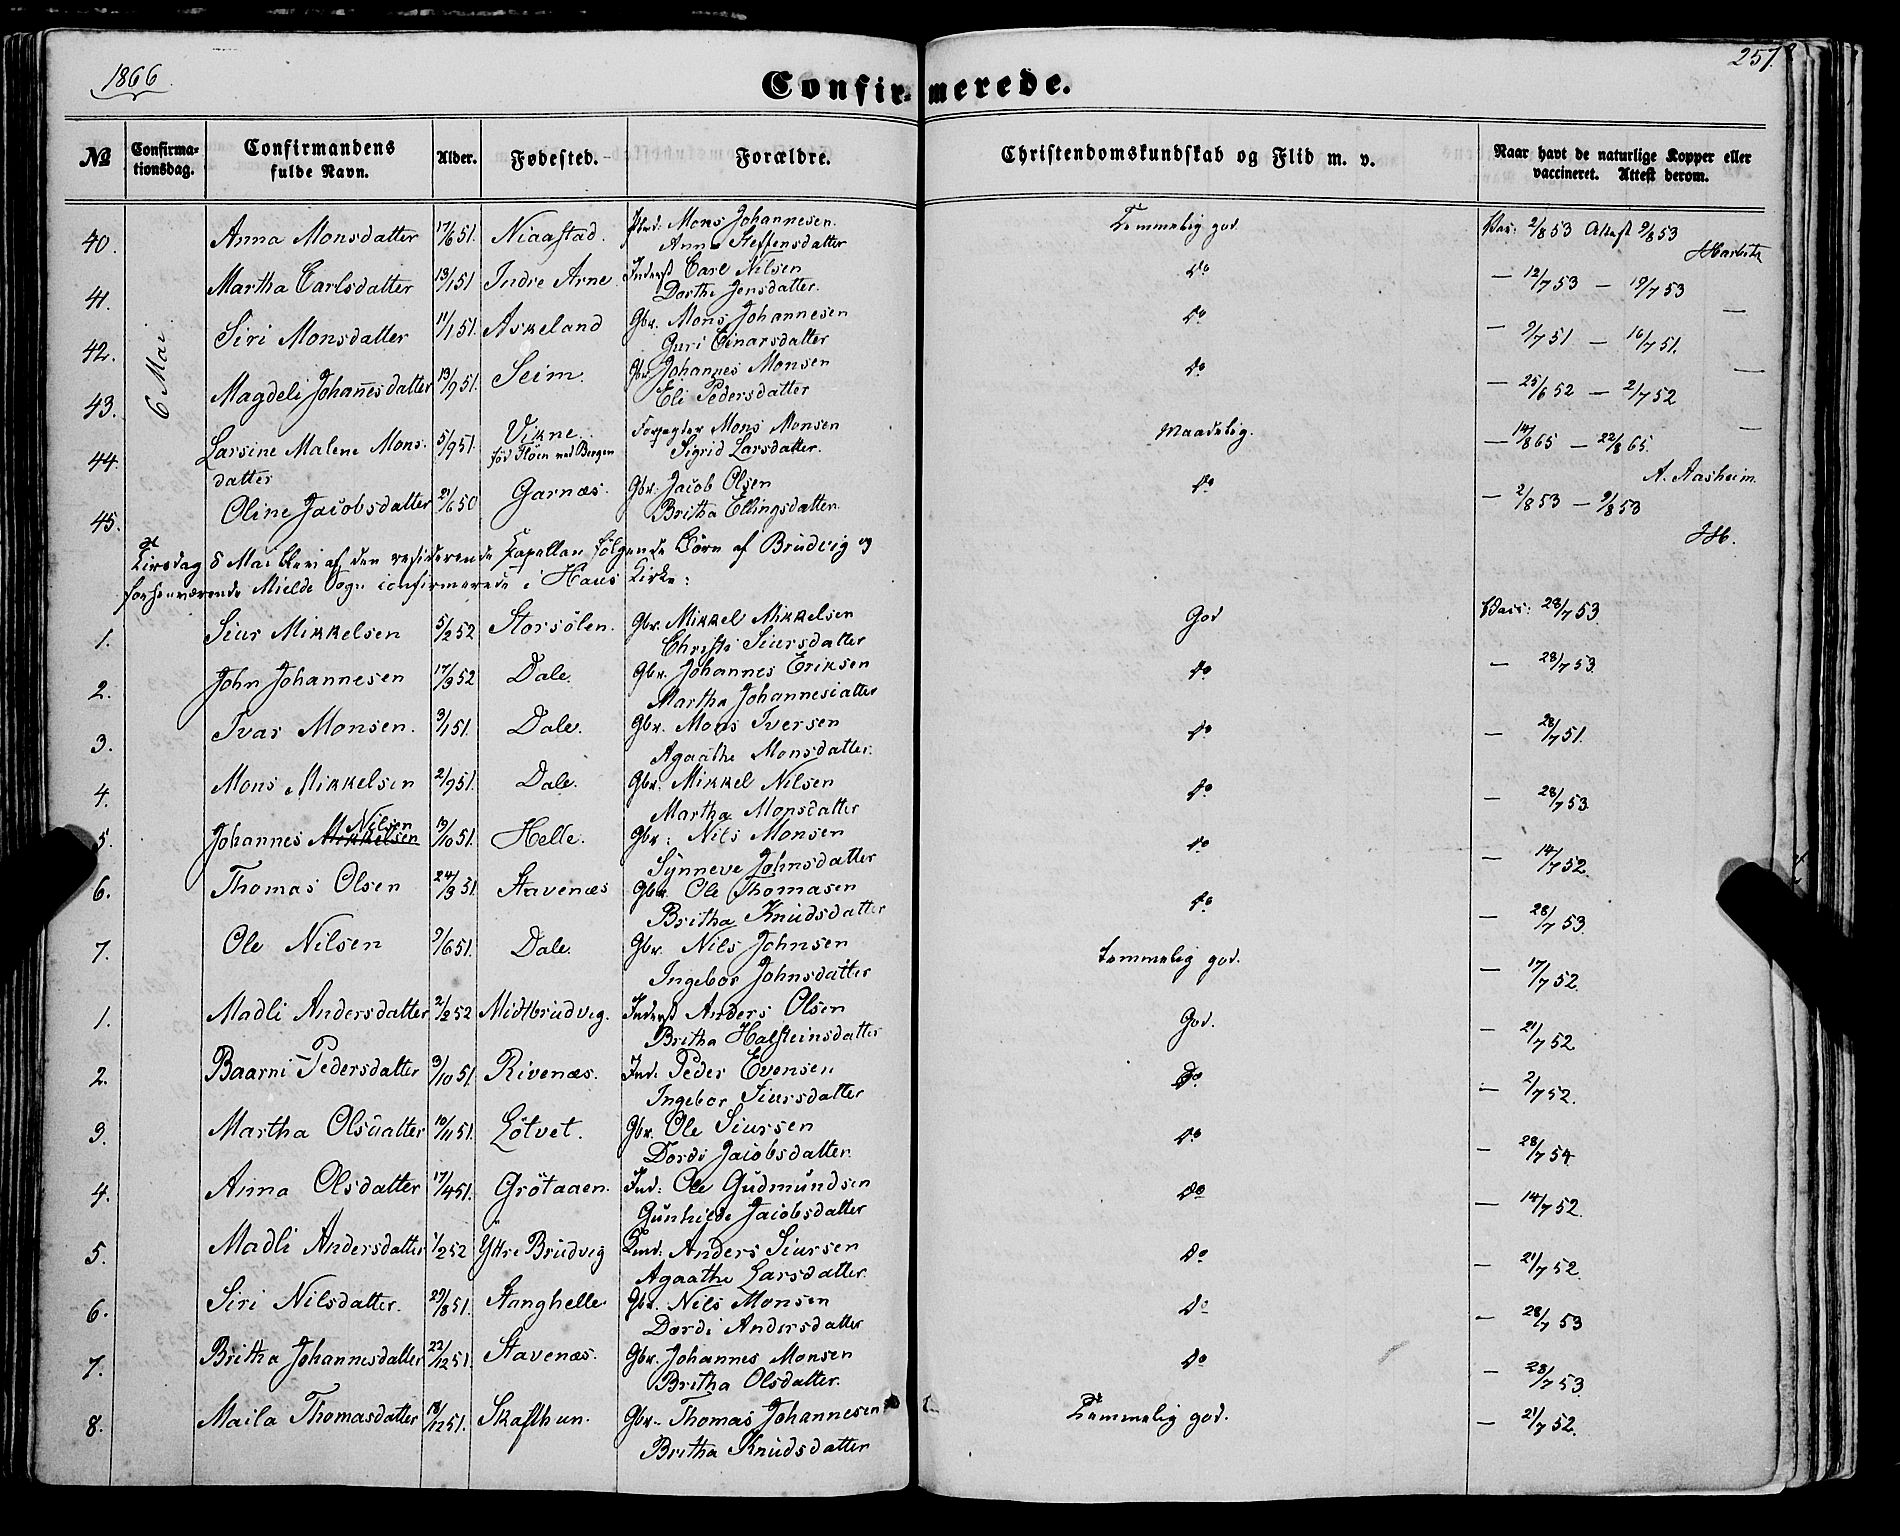 1866.
257.
Confirmerede.
No
Confirmationsdag.
Confirmandens fulde Navn.
Alder.
Fødested.
Forældre.
Christendomskundskab og Flid m. v.
Naar havt de naturlige Kopper eller vaccineret. Attest derom.
6 Mai
40. Anna Monsdatter 17/6 51. Niaastad. Mons Johannesen. Temmelig god. Vac: 2/8 53 Attest 9/8 53
Anna Steffensdatter
41. Martha Carlsdatter 13/1 51 Indre Arne. Inderst Carl Nilsen Do — 12/7 53 — 19/7 53 —
Dorthe Jensdatter.
42. Siri Monsdatter 11/1 51. Askeland Gbr. Mons Johannesen Do — 9/7 51 — 16/7 51. —
Guri Einarsdatter
43. Magdeli Johanesdatter 13/9 51. Seim. Gbr. Johannes Monsen Do — 25/6 52 — 2/7 52 —
Eli Pedersdatter
44. Larsine Malene Mons- 5/9 51. Vikne. Mons Monsen Maadelig. — 14/8 65 — 22/8 65.
datter Sigrid Larsdatter. A. Aasheim.
45. Oline Jacobsdatter 21/6 50 Garnæs. Gbr. Jacob Olsen Do — 2/8 53 — 9/8 53
Britha Ellingsdatter.
Tirsdag 8 Mai blevi af den residerende Kapellan følgende Börn af Brudvig og
forhenværende Mielde Sogn confirmerede i Haus Kirke:
1. Siur Mikkelsen 5/2 52 Storsölen. Gbr. Mikkel Mikkelsen God Vacc: 28/7 53.
Christi Siursdatter
2. John Johannesen 17/3 52 Dale. Gbr. Johannes Eriksen Do — 28/7 53.
Martha Johannesdatter
3. Ivar Monsen. 3/1 51. Dale. Gbr. Mons Iversen Do — 28/7 51.
Agaathe Monsdatter.
4. Mons Mikkelsen 2/9 51. Dale. Gbr. Mikkel Nilsen Do — 28/7 53.
Martha Monsdatter
5. Johannes Mikkelsen Nilsen 19/10 51. Helle. Gbr: Nils Monsen Do — 14/7 52.
Synneve Johnsdatter
6. Thomas Olsen 24/3 51. Stavenæs Gbr. Ole Thomasen Do — 28/7 53.
Britha Knudsdatter
7. Ole Nilsen 9/6 51. Dale. Gbr. Nils Johnsen Temmelig god. — 17/7 52.
Ingebor Johnsdatter
1. Madli Andersdatter 2/2 52 Midtbrudvig. Inderst Anders Olsen God. — 21/7 52.
Britha Halsteinsdatter
2. Baarni Pedersdatter 3/10 51. Rivenæs. Ind: Peder Evensen Do — 2/7 52.
Ingebor Siursdatter
3. Martha Olsdatter 10/11 51. Lötvet. Gbr. Ole Siursen Do — 28/7 54.
Dordi Jacobsdatter.
4. Anna Olsdatter 17/4 51. Grötaaen. Ind: Ole Gudmundsen Do — 14/7 52.
Gunhilde Jacobsdatter
5. Madli Andersdatter 1/2 52 Yttre Brudvig Ind: Anders Siursen Do — 21/7 52.
Agaathe Larsdatter.
6. Siri Nilsdatter. 29/8 51. Stanghelle Gbr. Nils Monsen Do — 28/7 53
Dordi Andersdatter
7. Britha Johannesdatter 22/12 51. Stavenæs. Gbr. Johannes Monsen Do — 28/7 53.
Britha Olsdatter.
8. Maila Thomasdatter 18/12 51. Skafthun. Gbr. Thomas Johannesen Temmelig god. — 21/7 52.
Britha Knudsdatter